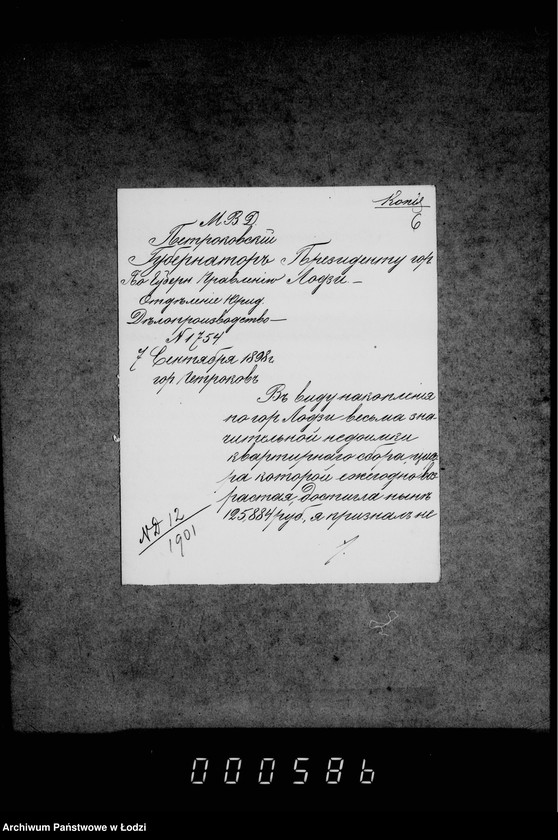 Копія
М. В. Д.
Петроковскій
Губернаторъ Президенту гор
По Губерн Правленію Лодзи
Отдѣленіе Юрид.
Дѣлопроизводство
N 1754
7 Сентября 1898 г
гор Петроковъ
Въ виду накопленія
по гор Лодзи весьма зна
чительной недоимки
квартирнаго сбора, циф
ра которой ежегодно воз
растая, достигла нынѣ
125884 руб., я призналъ не
./.
N D 12
1901
000586
Archiwum Państwowe w Łodzi